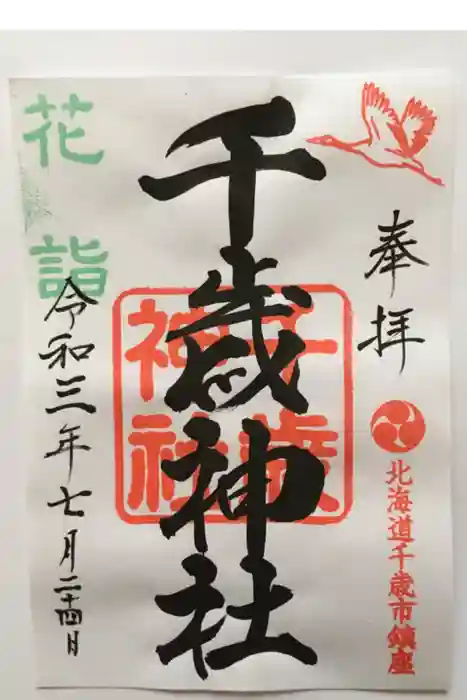 奉拝
北海道千歳市鎮座
千歳神社
千歳
神社
花詣
令和三年七月二十四日